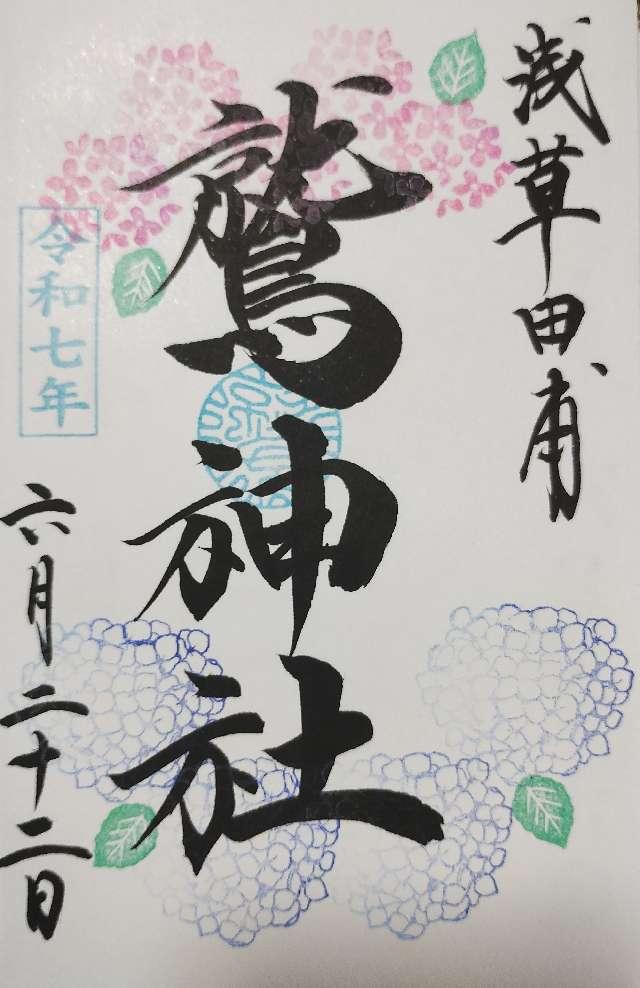 浅草田甫
鷲神社
令和七年
六月二十二日